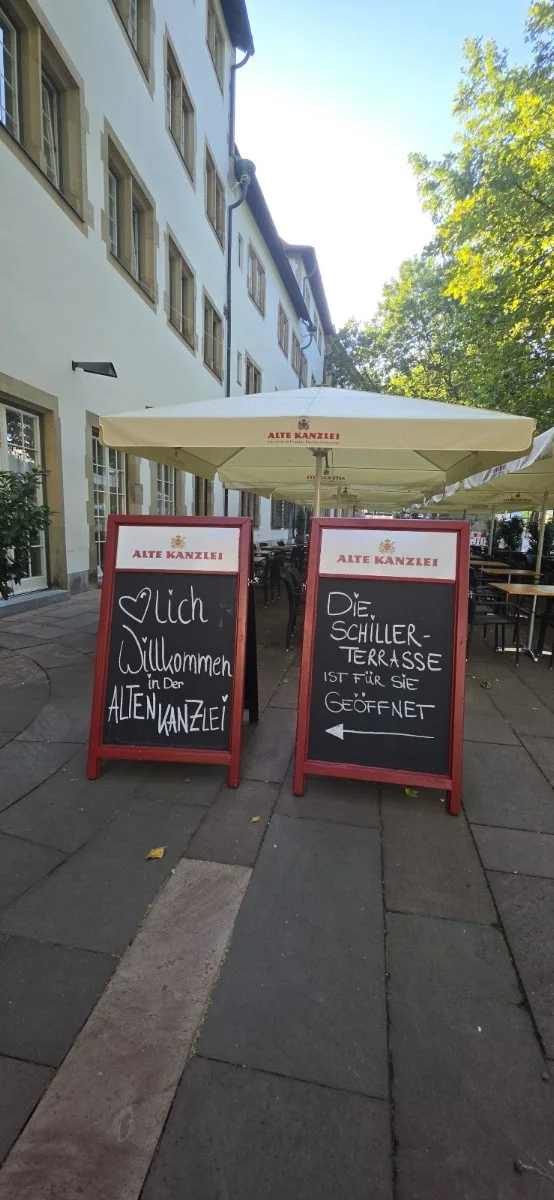 ALTE KANZLEI
ALTE KANZLEI
♡lich
Willkommen
in Der
ALTEN KANZLEI
ALTE KANZLEI
DIE
SCHILLER-
TERRASSE
IST FÜR SIE
GEÖFFNET